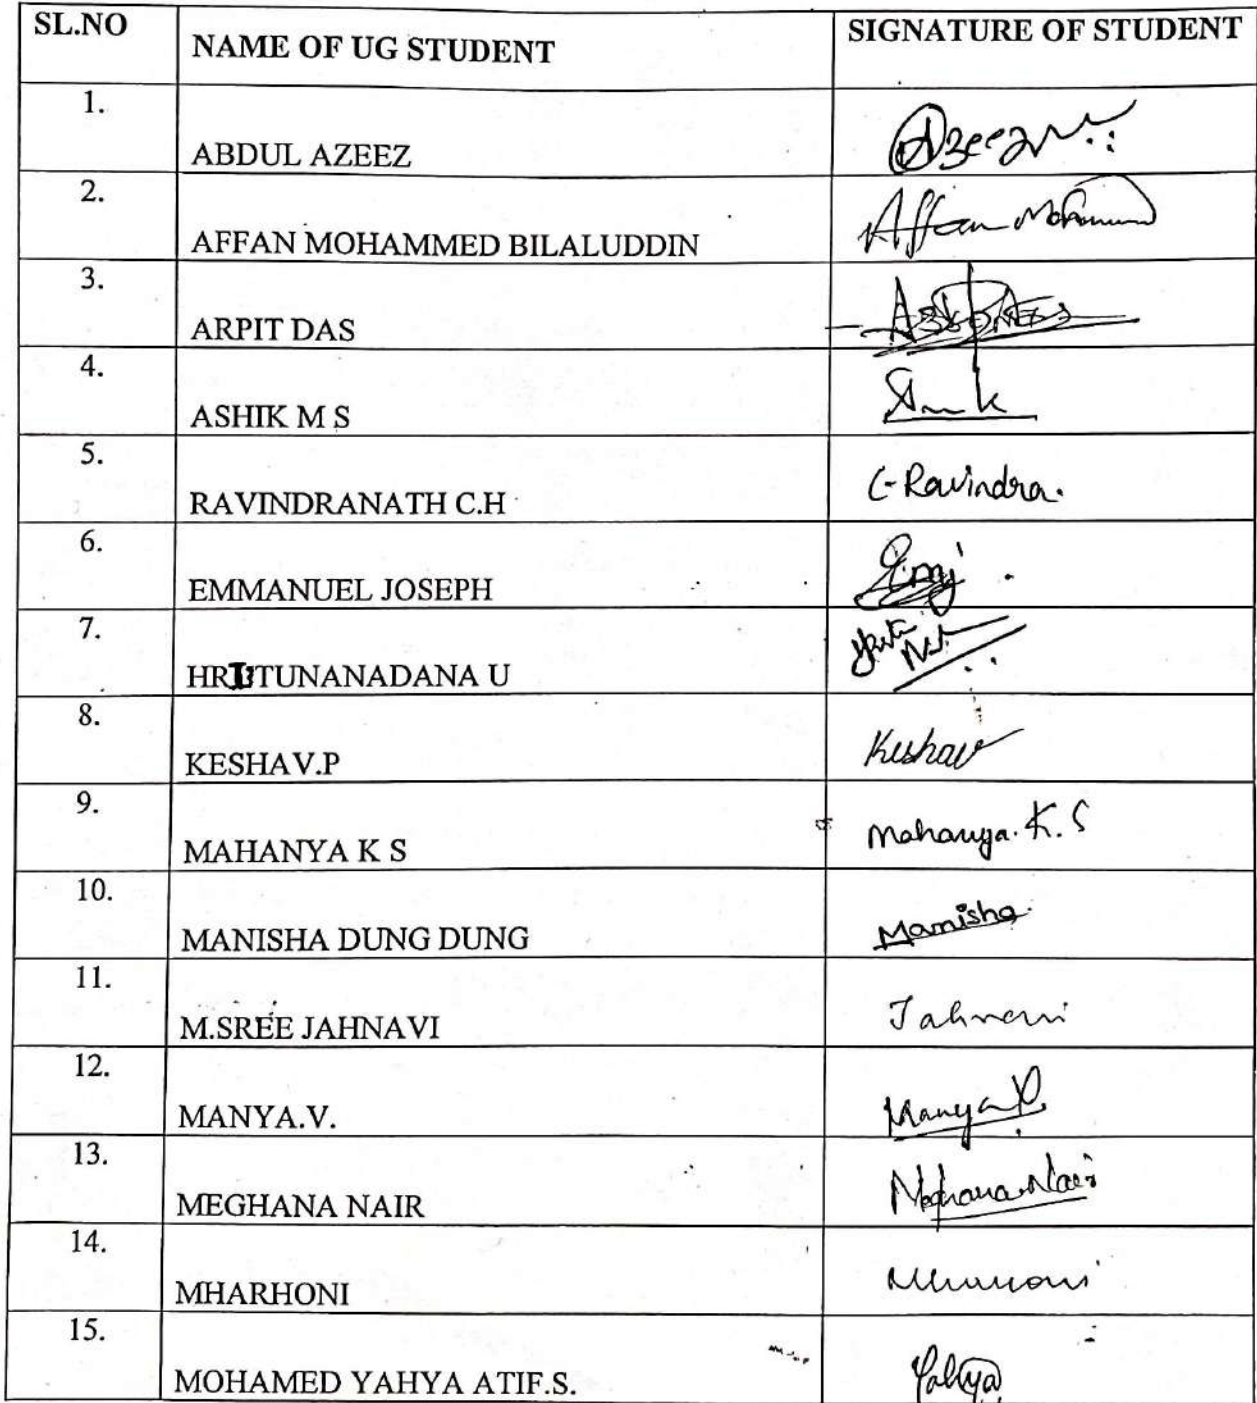 SL.NO NAME OF UG STUDENT SIGNATURE OF STUDENT
1. ABDUL AZEEZ Azeez
2. AFFAN MOHAMMED BILALUDDIN Affan Mohammed
3. ARPIT DAS
4. ASHIK M S
5. RAVINDRANATH C.H C-Ravindra.
6. EMMANUEL JOSEPH Emj
7. TUNANADANA U
8. KESHAV.P Keshav
9. MAHANYA K S Mahanya. K. S
10. MANISHA DUNG DUNG Manisha
11. M.SREE JAHNAVI Jahnavi
12. MANYA.V. Manya V.
13. MEGHANA NAIR Meghana Nair
14. MHARHONI Mharhoni
15. MOHAMED YAHYA ATIF.S. Yahya